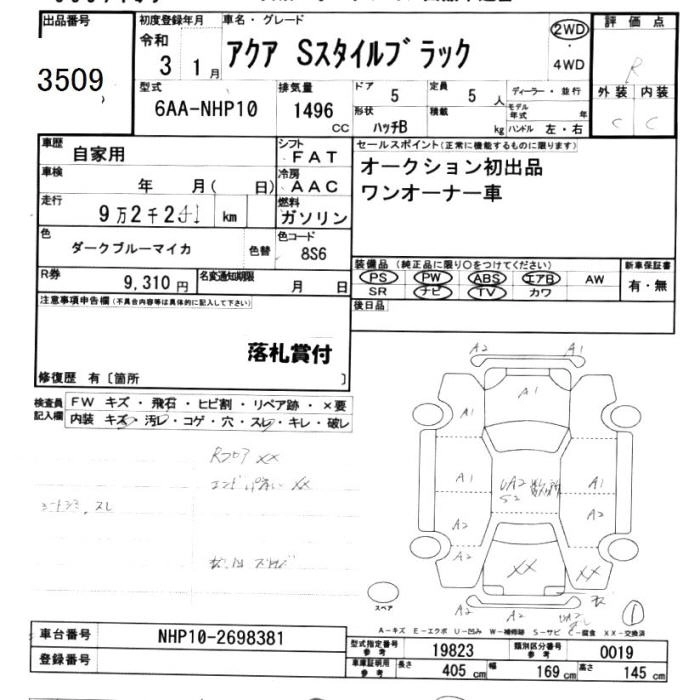 出品番号 初度登録年月 車名・グレード 2WD 評価点
3509 令和 3 1月 アクア Sスタイルブラック 4WD R
型式 排気量 ドア 定員 ディーラー・並行 外装 内装
6AA-NHP10 1496 CC 5 5人 モデル年式 年 C C
形状 ハッチB 積載 kg ハンドル 左・右
車歴 自家用 シフト FAT セールスポイント(正常に機能するものに限ります)
車検 年 月( 日) 冷房 AAC オークション初出品
走行 燃料 ワンオーナー車
9万2千2 km ガソリン
色 ダークブルーマイカ 色替 色コード 8S6
装備品(純正品に限り○をつけてください) 新車保証書
PS PW ABS エアB AW 有・無
SR ナビ TV カワ
R券 9,310円 名変通知期限 月 日
後日品
注意事項申告欄(不具合内容等は具体的に記入して下さい)
落札賞付
修復歴 有〔箇所 〕
検査員記入欄 FW キズ・飛石・ヒビ割・リペア跡・×要
内装 キズ・汚レ・コゲ・穴・スレ・キレ・破レ
A2 A1
A1
A1
A1 A1
A2 A2
A2 A2
XX XX
A2 A2
スペア
A-キズ E-エクボ U-凹み W-補修跡 S-サビ C-腐食 XX-交換済
車台番号 NHP10-2698381
登録番号
型式指定番号 参考 19823 類別区分番号 参考 0019
車庫証明用 参考 長さ 405cm 幅 169cm 高さ 145cm